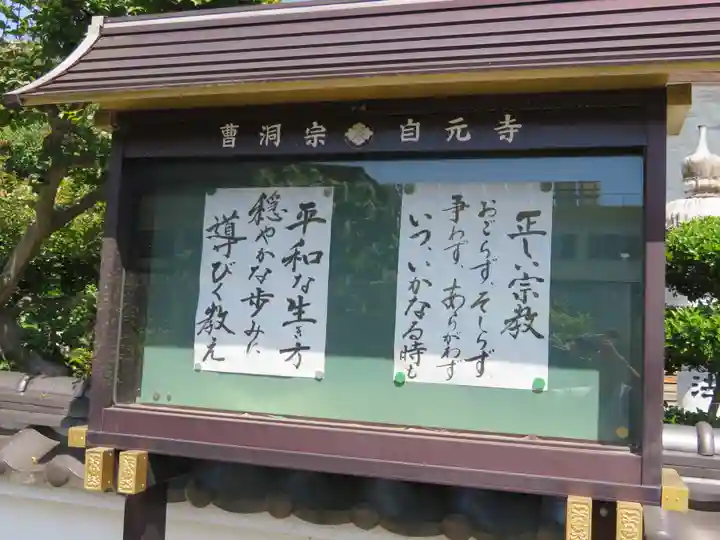 曹洞宗 自元寺
正しい宗教
おごらず、そしらず
争わず、あらがわず
いつ、いかなる時も
平和な生き方
穏やかな歩みに
導びく教え